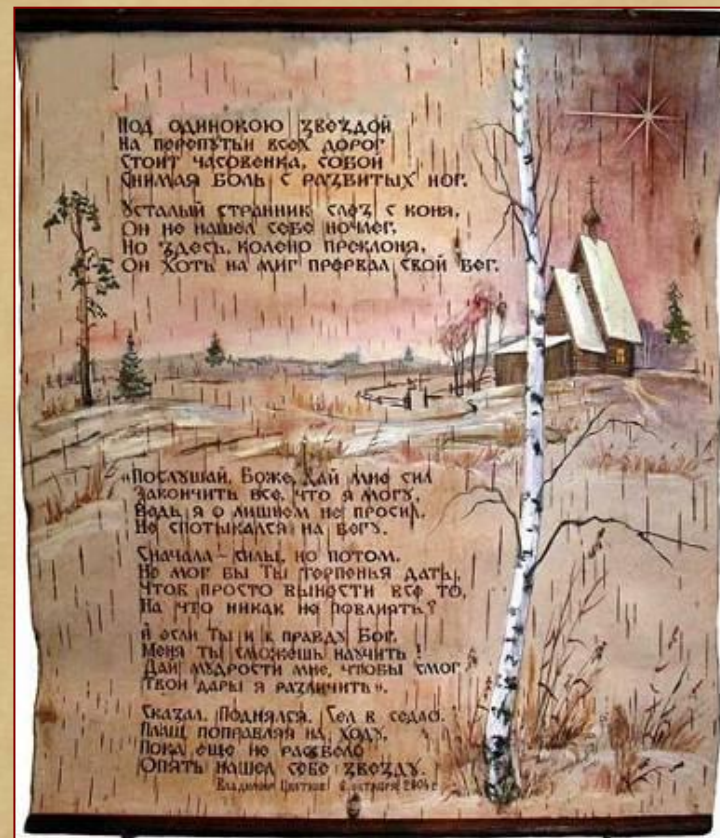 Под одинокою звездой
На перепутьи всех дорог
Стоит часовенка, собой
Снимая боль с разбитых ног.
Усталый странник слез с коня,
Он не нашел себе ночлег,
Но здесь, колено преклоня,
Он хоть на миг прервал свой бег.
«Послушай, Боже, дай мне сил
Закончить все, что я могу,
Ведь я о лишнем не просил,
Не спотыкался на бегу.
Сначала – силы, но потом,
Не мог бы Ты терпенья дать,
Чтоб просто вынести все то,
На что никак не повлиять?
И если Ты и в правду Бог,
Меня ты сможешь научить!
Дай мудрости мне, чтобы смог
Твои дары я различить».
Сказал. Поднялся. Сел в седло.
Плащ поправляя на ходу,
Пока еще не рассвело
Опять нашел себе звезду.
Владимир Цветков 6 октября 2004 г